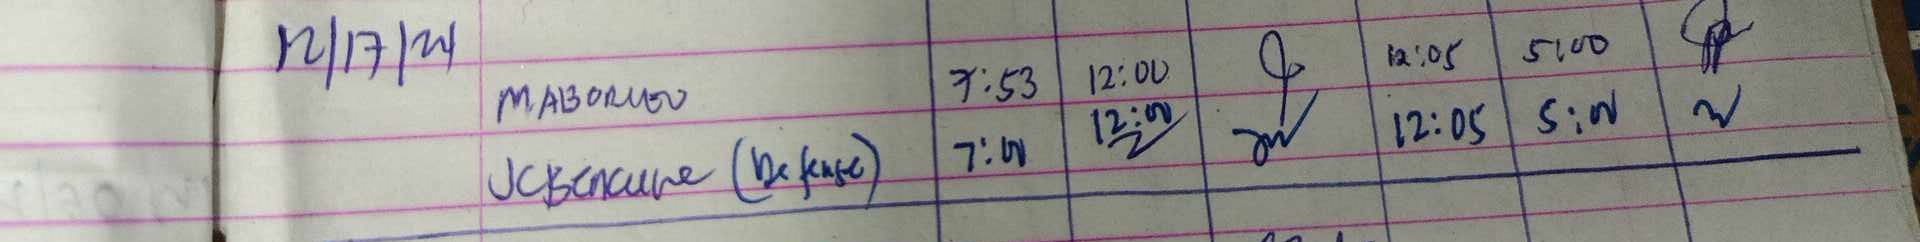 12/17/24
MABORUEO 7:53 12:00 12:05 5:00
JCBENCULNE (Defense) 7:00 12:00 12:05 5:00